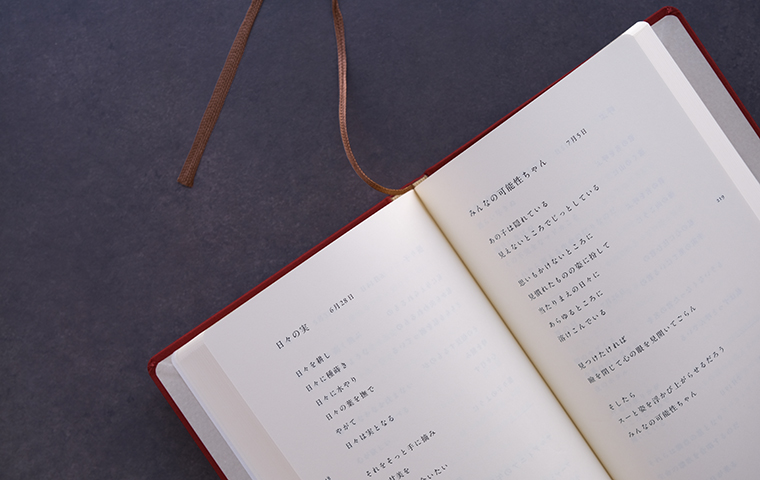 日々の実 6月28日
日々を耕し
日々に種蒔き
日々に水やり
日々の葉を撫で
やがて
日々は実となる
それをそっと手に摘み
甘美を
みんなの可能性ちゃん 7月5日
あの子は隠れている
見えないところでじっとしている
思いもかけないところに
見慣れたものの姿に扮して
当たりまえの日々に
あらゆるところに
溶けこんでいる
見つけたければ
瞼を閉じて心の眼を見開いてごらん
そしたら
スーと姿を浮かび上がらせるだろう
みんなの可能性ちゃん